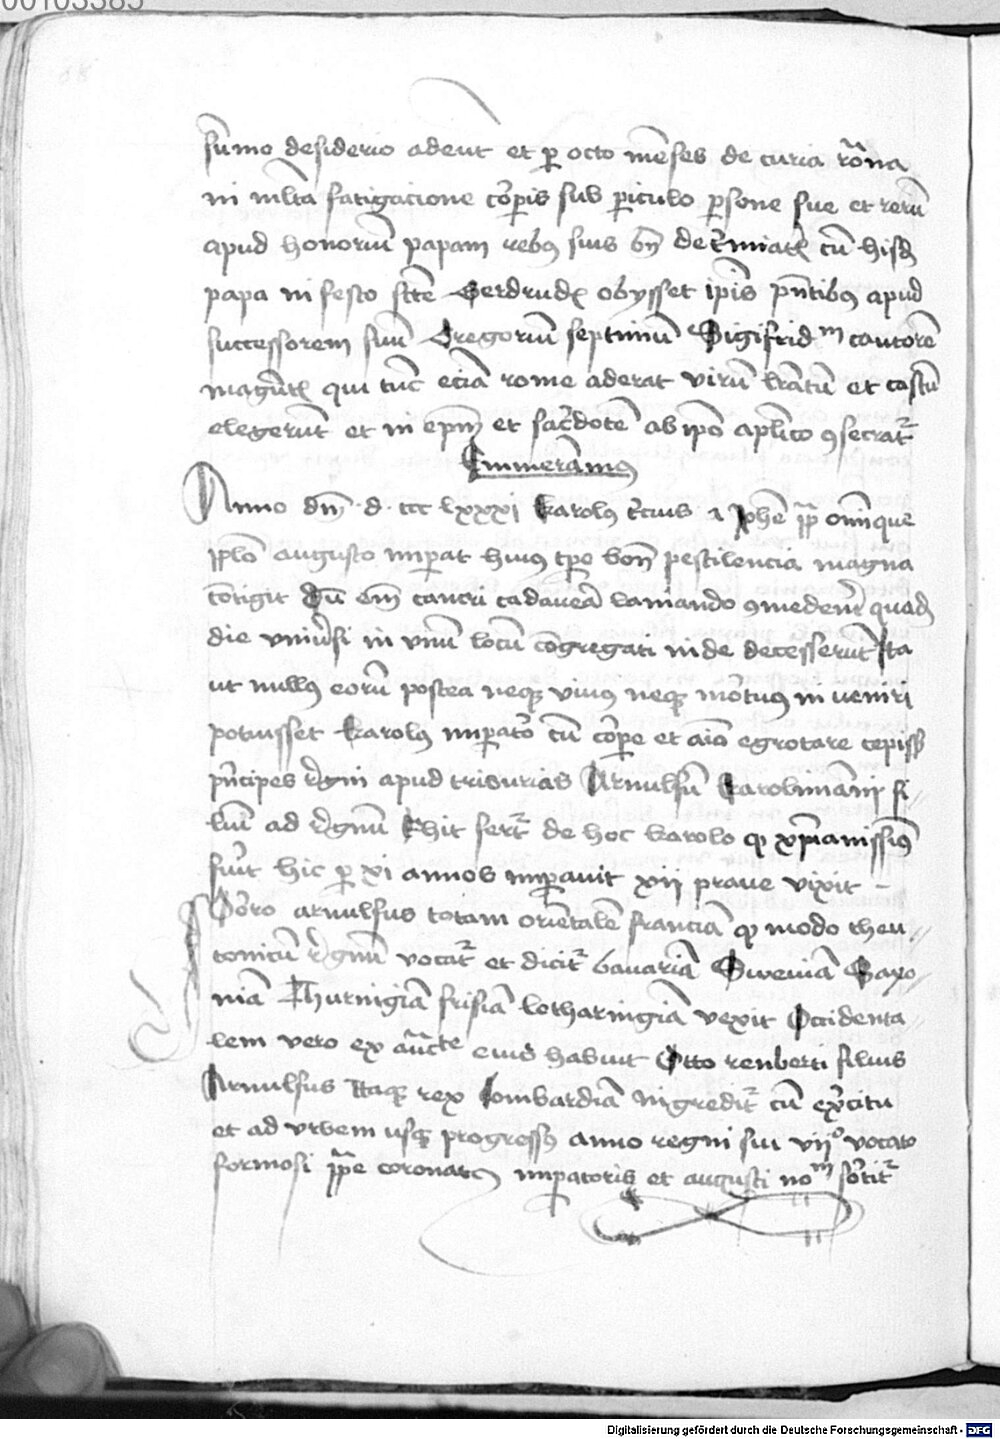 00103385
su̅mo desiderio adeu̅t et p̲ octo me̅ses de curia ro̅na
in m̅lta fatigacione co̅r̲pis sub p̲iculo p̲sone sue et reru̅
apud honoriu̅ papam rebꝯ suis bn̅ det̅minatꝭ cu̅ hisd̲
papa in festo scte̅ Gerdrudꝭ obysset ip̅is pn̅tibꝯ apud
successorem suu̅ Gregoriu̅ septimu̅ Sigifridᵐ cantore̅
magu̅tꝭ qui tu̅c ecia̅ rome aderat viru̅ lr̅atu̅ et castu̅
elegeru̅t et in ep̅m et sac̅dote̅ ab ip̅o ap̅lico ꝯsecrat᷑
Emmera̅mꝯ
Anno dn̅ · d · ccc lxxxi karolꝯ t̅cius a Joh̅e pp̅ om̅nique
pp̅lo augusto imp̲at huiꝯ tp̅e bou̅ pestilencia magna
co̅tigit Du̅ em̅ cancri cadavea̅ laniando ꝯmeder̅et quad̲
die vniu̅si in vnu̅ locu̅ co̅gregati inde decesseru̅t Ita
ut nullꝯ eoru̅ postea neqꝫ viuꝯ neqꝫ mo̅tuꝯ in veniri
potuisset karolꝯ imp̲ato̅ cu̅ co̅r̲pe et aı̅o egrotare cepiss̲
p̅ncipes r̅egni apud triburias Arnulfu̅ karolima̅ni fi
liu̅ ad r̅egnu̅ Ehit fert᷑ de hoc karolo ꝙ xp̅ianissi̅ꝯ
fu̅it hic p̲ xi annos imp̲auit xii praue vixit –
Po̅ro arnulfus totam orie̅tale̅ francia̅ ꝙ modo theu
tonicu̅ r̅egnu̅ vocat᷑ et dicit᷑ bauaria̅ Sweuia̅ Saxo
nia̅ Thuringia̅ frisia̅ lotharingia̅ rexit Occidenta
lem vero ex au̅cte eius habuit Otto renberti filius
Arnulfus itaqꝫ rex Lombardia̅ ingredit᷑ cu̅ ex̅citu
et ad vrbem usqꝫ progressꝯ anno regni sui viiº vocato
formosi pp̅e coronatꝯ imp̲atoris et augusti noᵐ so̅tit᷑
Digitalisierung gefördert durch die Deutsche Forschungsgemeinschaft - DFG